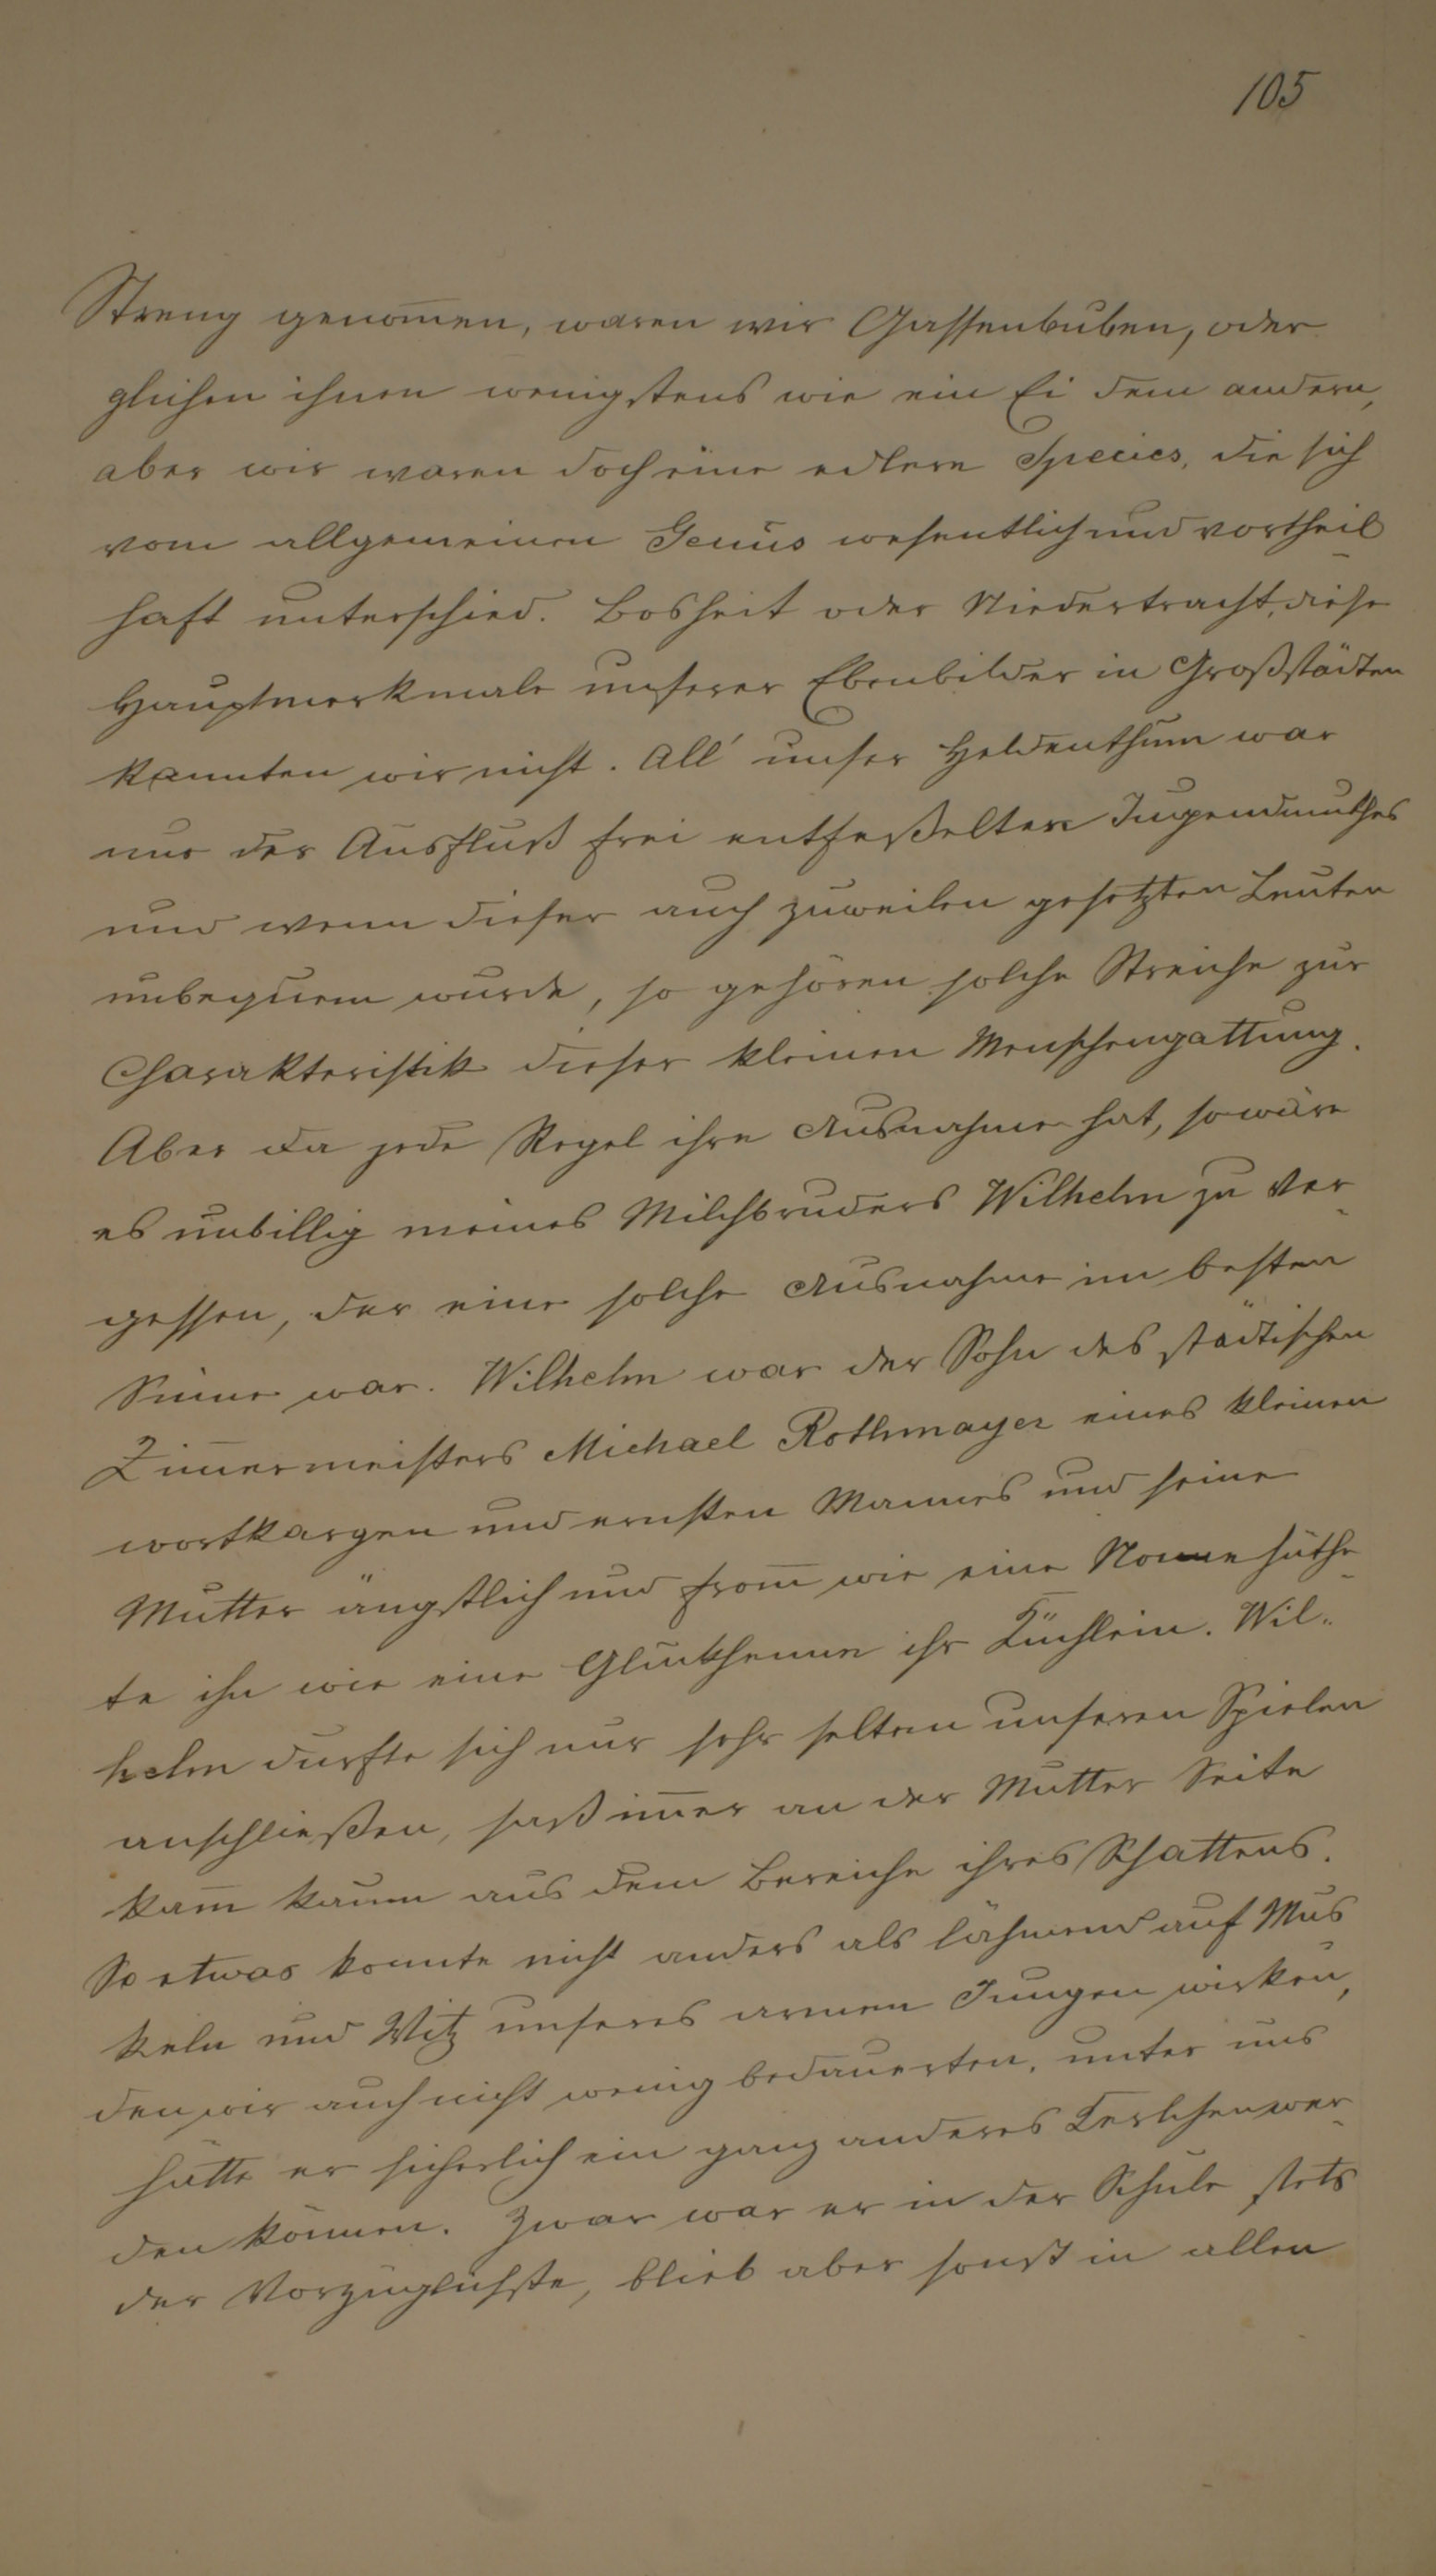 105
Streng genom̅en, waren wir Gassenbuben, oder
glichen ihnen wenigstens wie ein Ei dem andern,
aber wir waren doch eine edlere Species, die sich
vom allgemeinen Genus wesentlich und vortheil-
haft unterschied. Bosheit oder Niedertracht, diese
Hauptmerkmale unserer Ebenbilder in Großstädten
kannten wir nicht. All' unser Heldenthum war
nur der Ausfluß frei entfeßelten Jugendmuthes
und wenn dieser auch zuweilen gesetzten Leuten
unbequem wurde, so gehören solche Streiche zur
Charakteristik dieser kleinen Menschengattung.
Aber da jede Regel ihre Ausnahme hat, so wäre
es unbillig meines Milchbruders Wilhelm zu ver-
gessen, der eine solche Ausnahme im besten
Sinne war. Wilhelm war der Sohn des städtischen
Zim̅ermeisters Michael Rothmayer eines kleinen
wortkargen und ernsten Mannes und seine
Mutter ängstlich und from̅ wie eine Nonne hüthe-
te ihn wie eine Gluckhenne ihr Küchlein. Wil-
helm durfte sich nur sehr selten unseren Spielen
anschließen, saß im̅er an der Mutter Seite
kam̅ kaum aus dem Bereiche ihres Schattens.
So etwas konnte nicht anders als lähmend auf Mus-
keln und Witz unseres armen Jungen wirken,
den wir auch nicht wenig bedauerten, unter uns
hätte er sicherlich ein ganz anderes Kerlchen wer-
den können. Zwar war er in der Schule stets
der Vorzüglichste, blieb aber sonst in allen